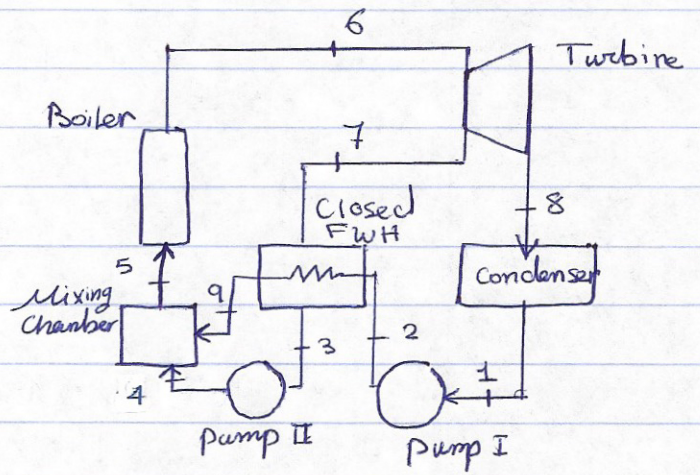 6
Turbine
Boiler
7
Closed
FWH
8
5
Condenser
Mixing
Chamber
9
3
2
4
1
Pump II
Pump I